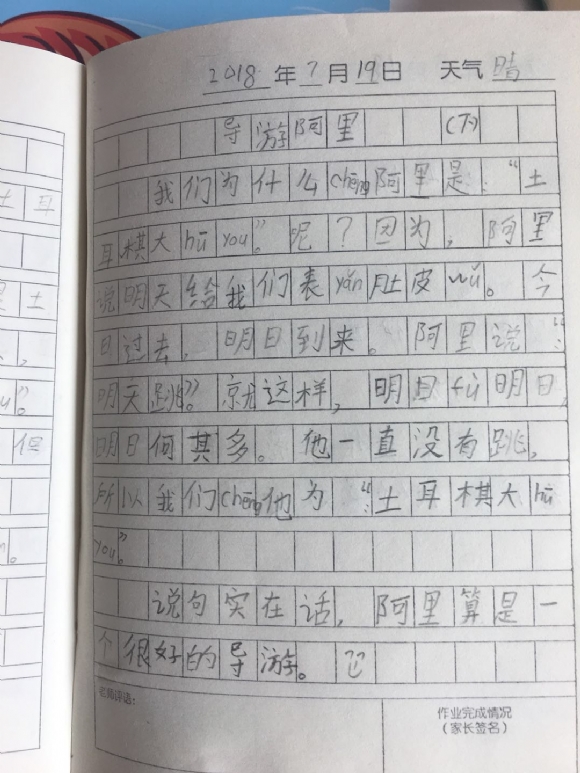 2018年7月19日 天气 晴
导游阿里 (下)
我们为什么chēng阿里是:“土
耳棋大hū you”。呢?因为,阿里
说明天给我们表yǎn肚皮wǔ。今
日过去,明日到来。阿里说:“
明天跳”。就这样,明日fù明日,
明日何其多。他一直没有跳,
所以我们chēng他为:“土耳棋大hū
you”。
说句实在话,阿里算是一
个很好的导游。
老师评语:
作业完成情况
(家长签名)
土耳
是土
。
但
。